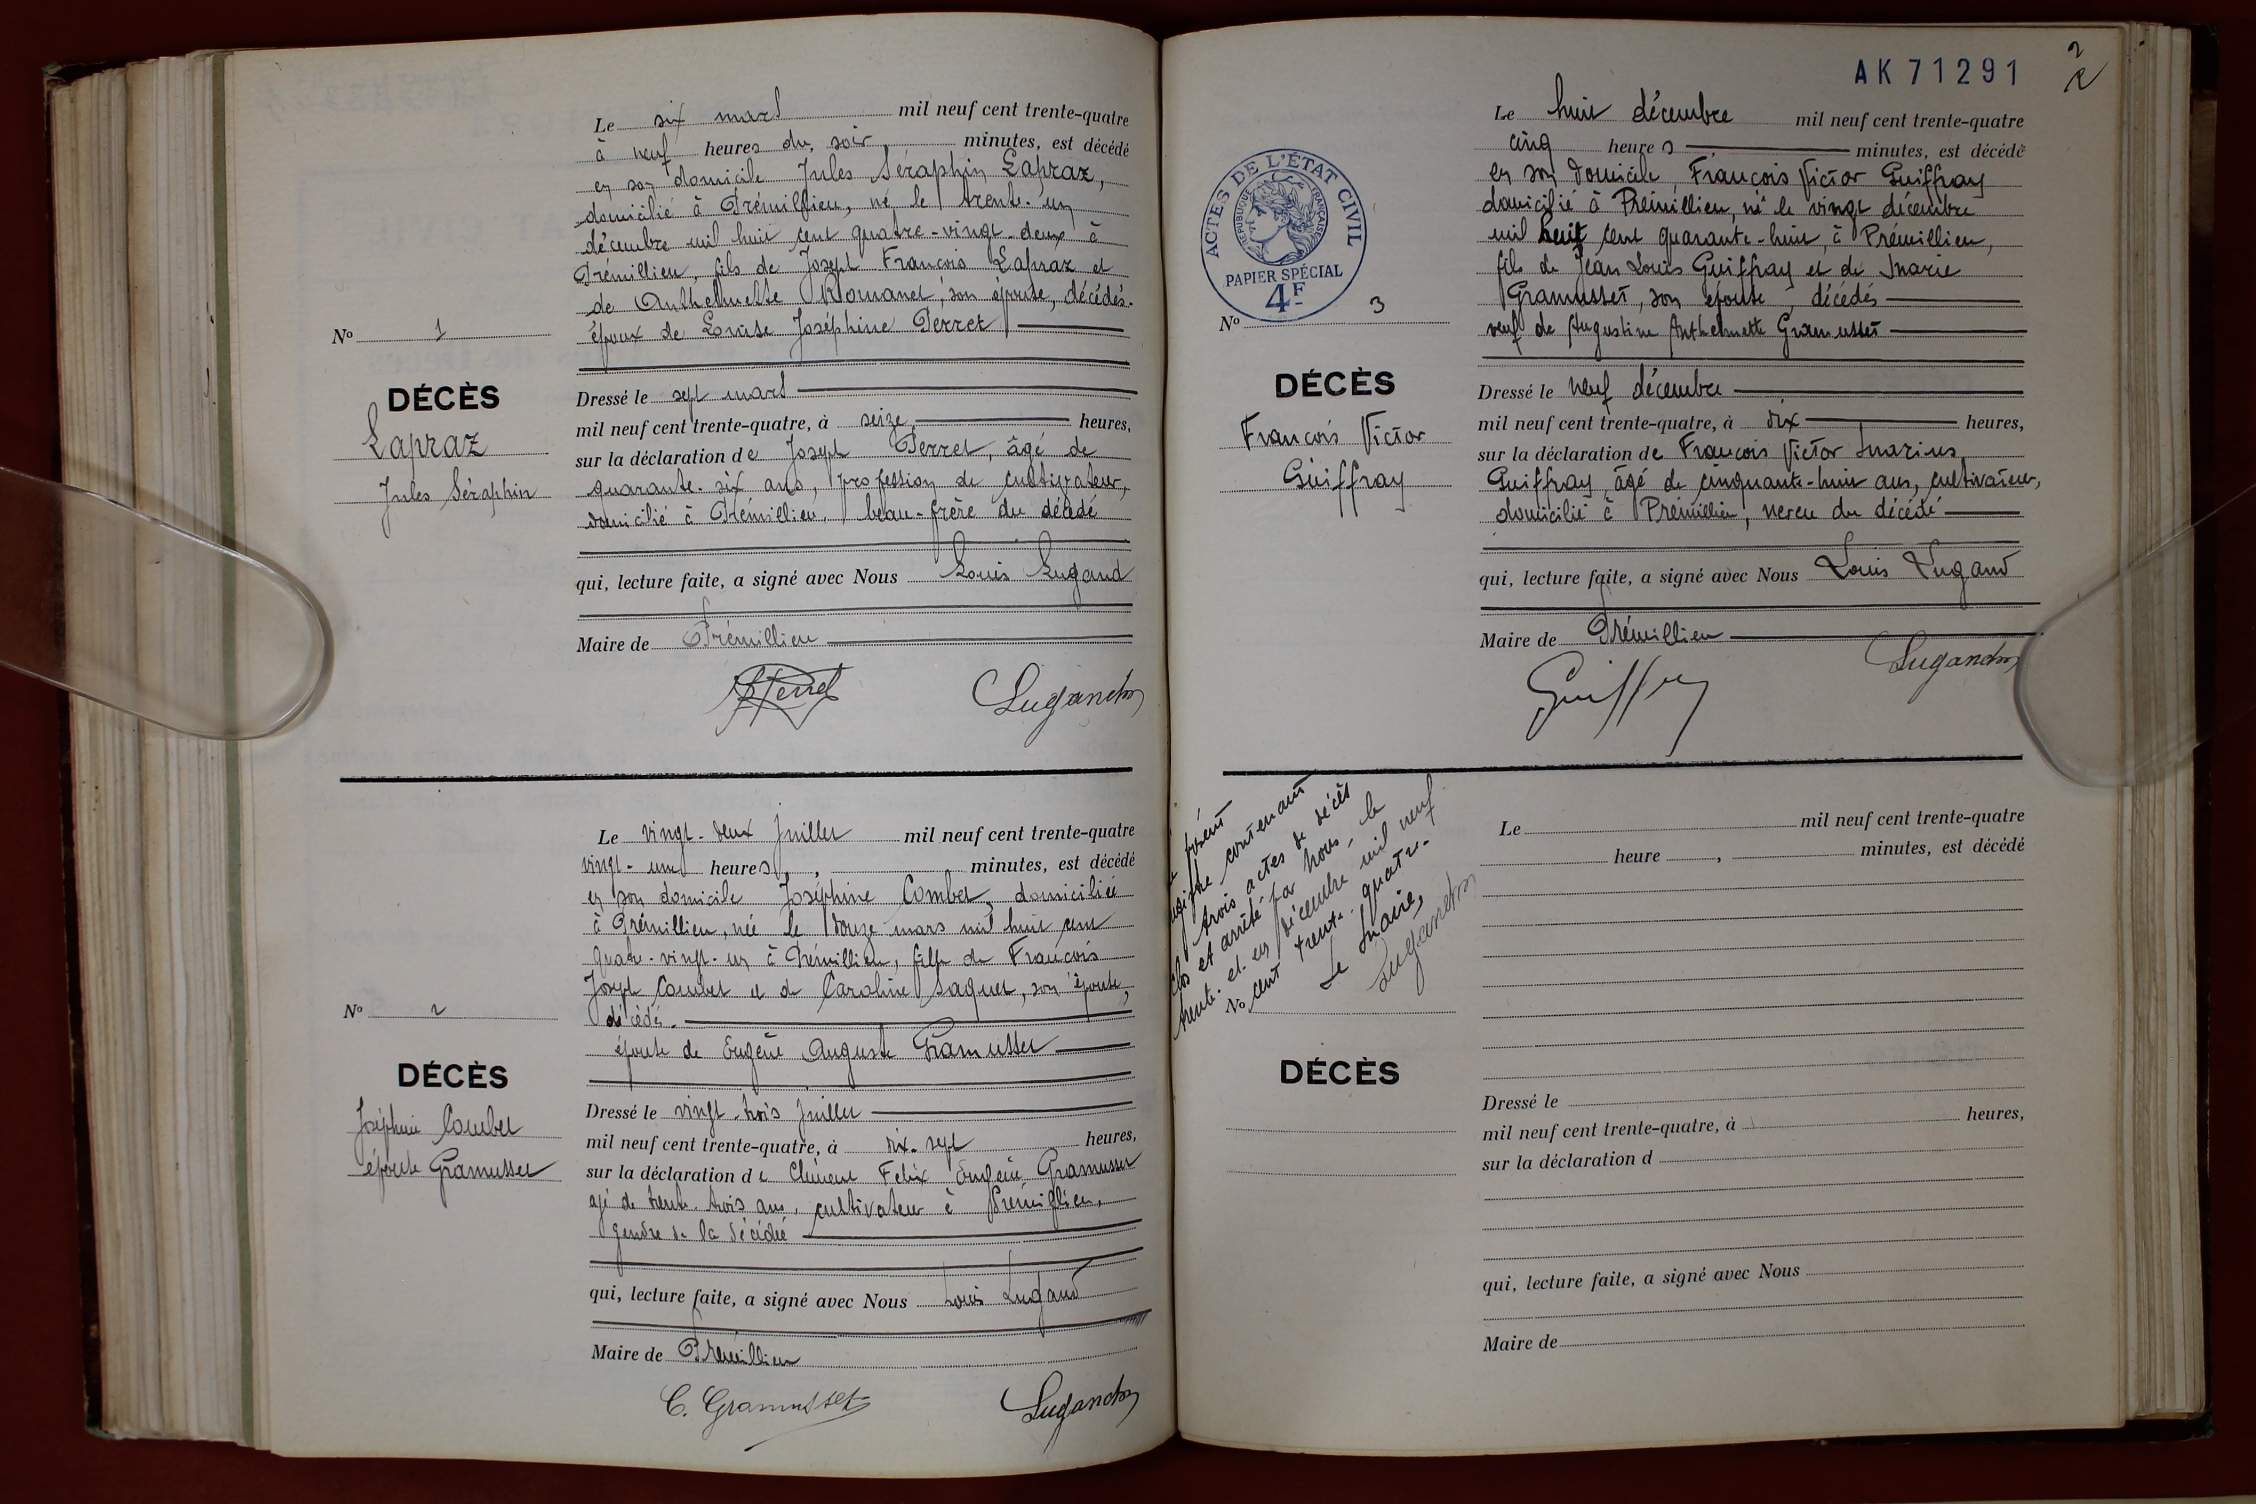 Le six mars mil neuf cent trente-quatre
à neuf heures du soir minutes, est décédé
en son domicile Jules Séraphin Lapraz,
domicilié à Prémillieu, né le trente-un
décembre mil huit cent quatre-vingt-deux à
Prémillieu, fils de Joseph François Lapraz et
de Anthelmette Romanet, son épouse, décédés.
époux de Louise Joséphine Perret
No 1
DÉCÈS
Lapraz
Jules Séraphin
Dressé le sept mars
mil neuf cent trente-quatre, à seize heures,
sur la déclaration de Joseph Perret, âgé de
quarante-six ans, profession de cultivateur,
domicilié à Prémillieu, beau-frère du décédé
qui, lecture faite, a signé avec Nous Louis Lugand
Maire de Prémillieu
Perret Lugand
Le vingt-deux Juillet mil neuf cent trente-quatre
vingt-une heures, minutes, est décédé
en son domicile Joséphine Combet, domiciliée
à Prémillieu, née le douze mars mil huit cent
quatre-vingt-un à Prémillieu, fille de François
Joseph Combet et de Caroline Jaquet, son épouse,
décédés.
épouse de Eugène Auguste Gramusset
No 2
DÉCÈS
Joséphine Combet
épouse Gramusset
Dressé le vingt-trois Juillet
mil neuf cent trente-quatre, à dix-sept heures,
sur la déclaration de Clément Felix Eugène Gramusset
agé de trente-trois ans, cultivateur à Prémillieu,
gendre de la décédée
qui, lecture faite, a signé avec Nous Louis Lugand
Maire de Prémillieu
C. Gramusset Lugand
AK 71291
2
ACTES DE L'ÉTAT CIVIL
RÉPUBLIQUE FRANÇAISE
PAPIER SPÉCIAL
4F
Le huit décembre mil neuf cent trente-quatre
cinq heures minutes, est décédé
en son domicile François Victor Guiffray
domicilié à Prémillieu, né le vingt décembre
mil huit cent quarante-huit, à Prémillieu,
fils de Jean Louis Guiffray et de Marie
Gramusset, son épouse, décédés
veuf de Augustine Anthelmette Gramusset
No 3
DÉCÈS
François Victor
Guiffray
Dressé le neuf décembre
mil neuf cent trente-quatre, à dix heures,
sur la déclaration de François Victor Marius
Guiffray, âgé de cinquante-huit ans, cultivateur,
domicilié à Prémillieu, neveu du décédé
qui, lecture faite, a signé avec Nous Louis Lugand
Maire de Prémillieu
Guiffray Lugand
présent
registre contenant
trois actes de décès
clos et arrêté par Nous, le
trente-et-un décembre mil neuf
cent trente-quatre.
Le Maire,
Lugand
Le mil neuf cent trente-quatre
heure , minutes, est décédé
No
DÉCÈS
Dressé le
mil neuf cent trente-quatre, à heures,
sur la déclaration d
qui, lecture faite, a signé avec Nous
Maire de